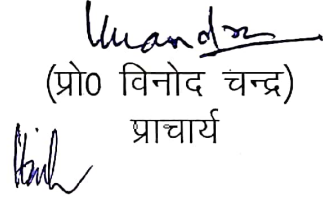 (प्रो0 विनोद चन्द्र)
प्राचार्य